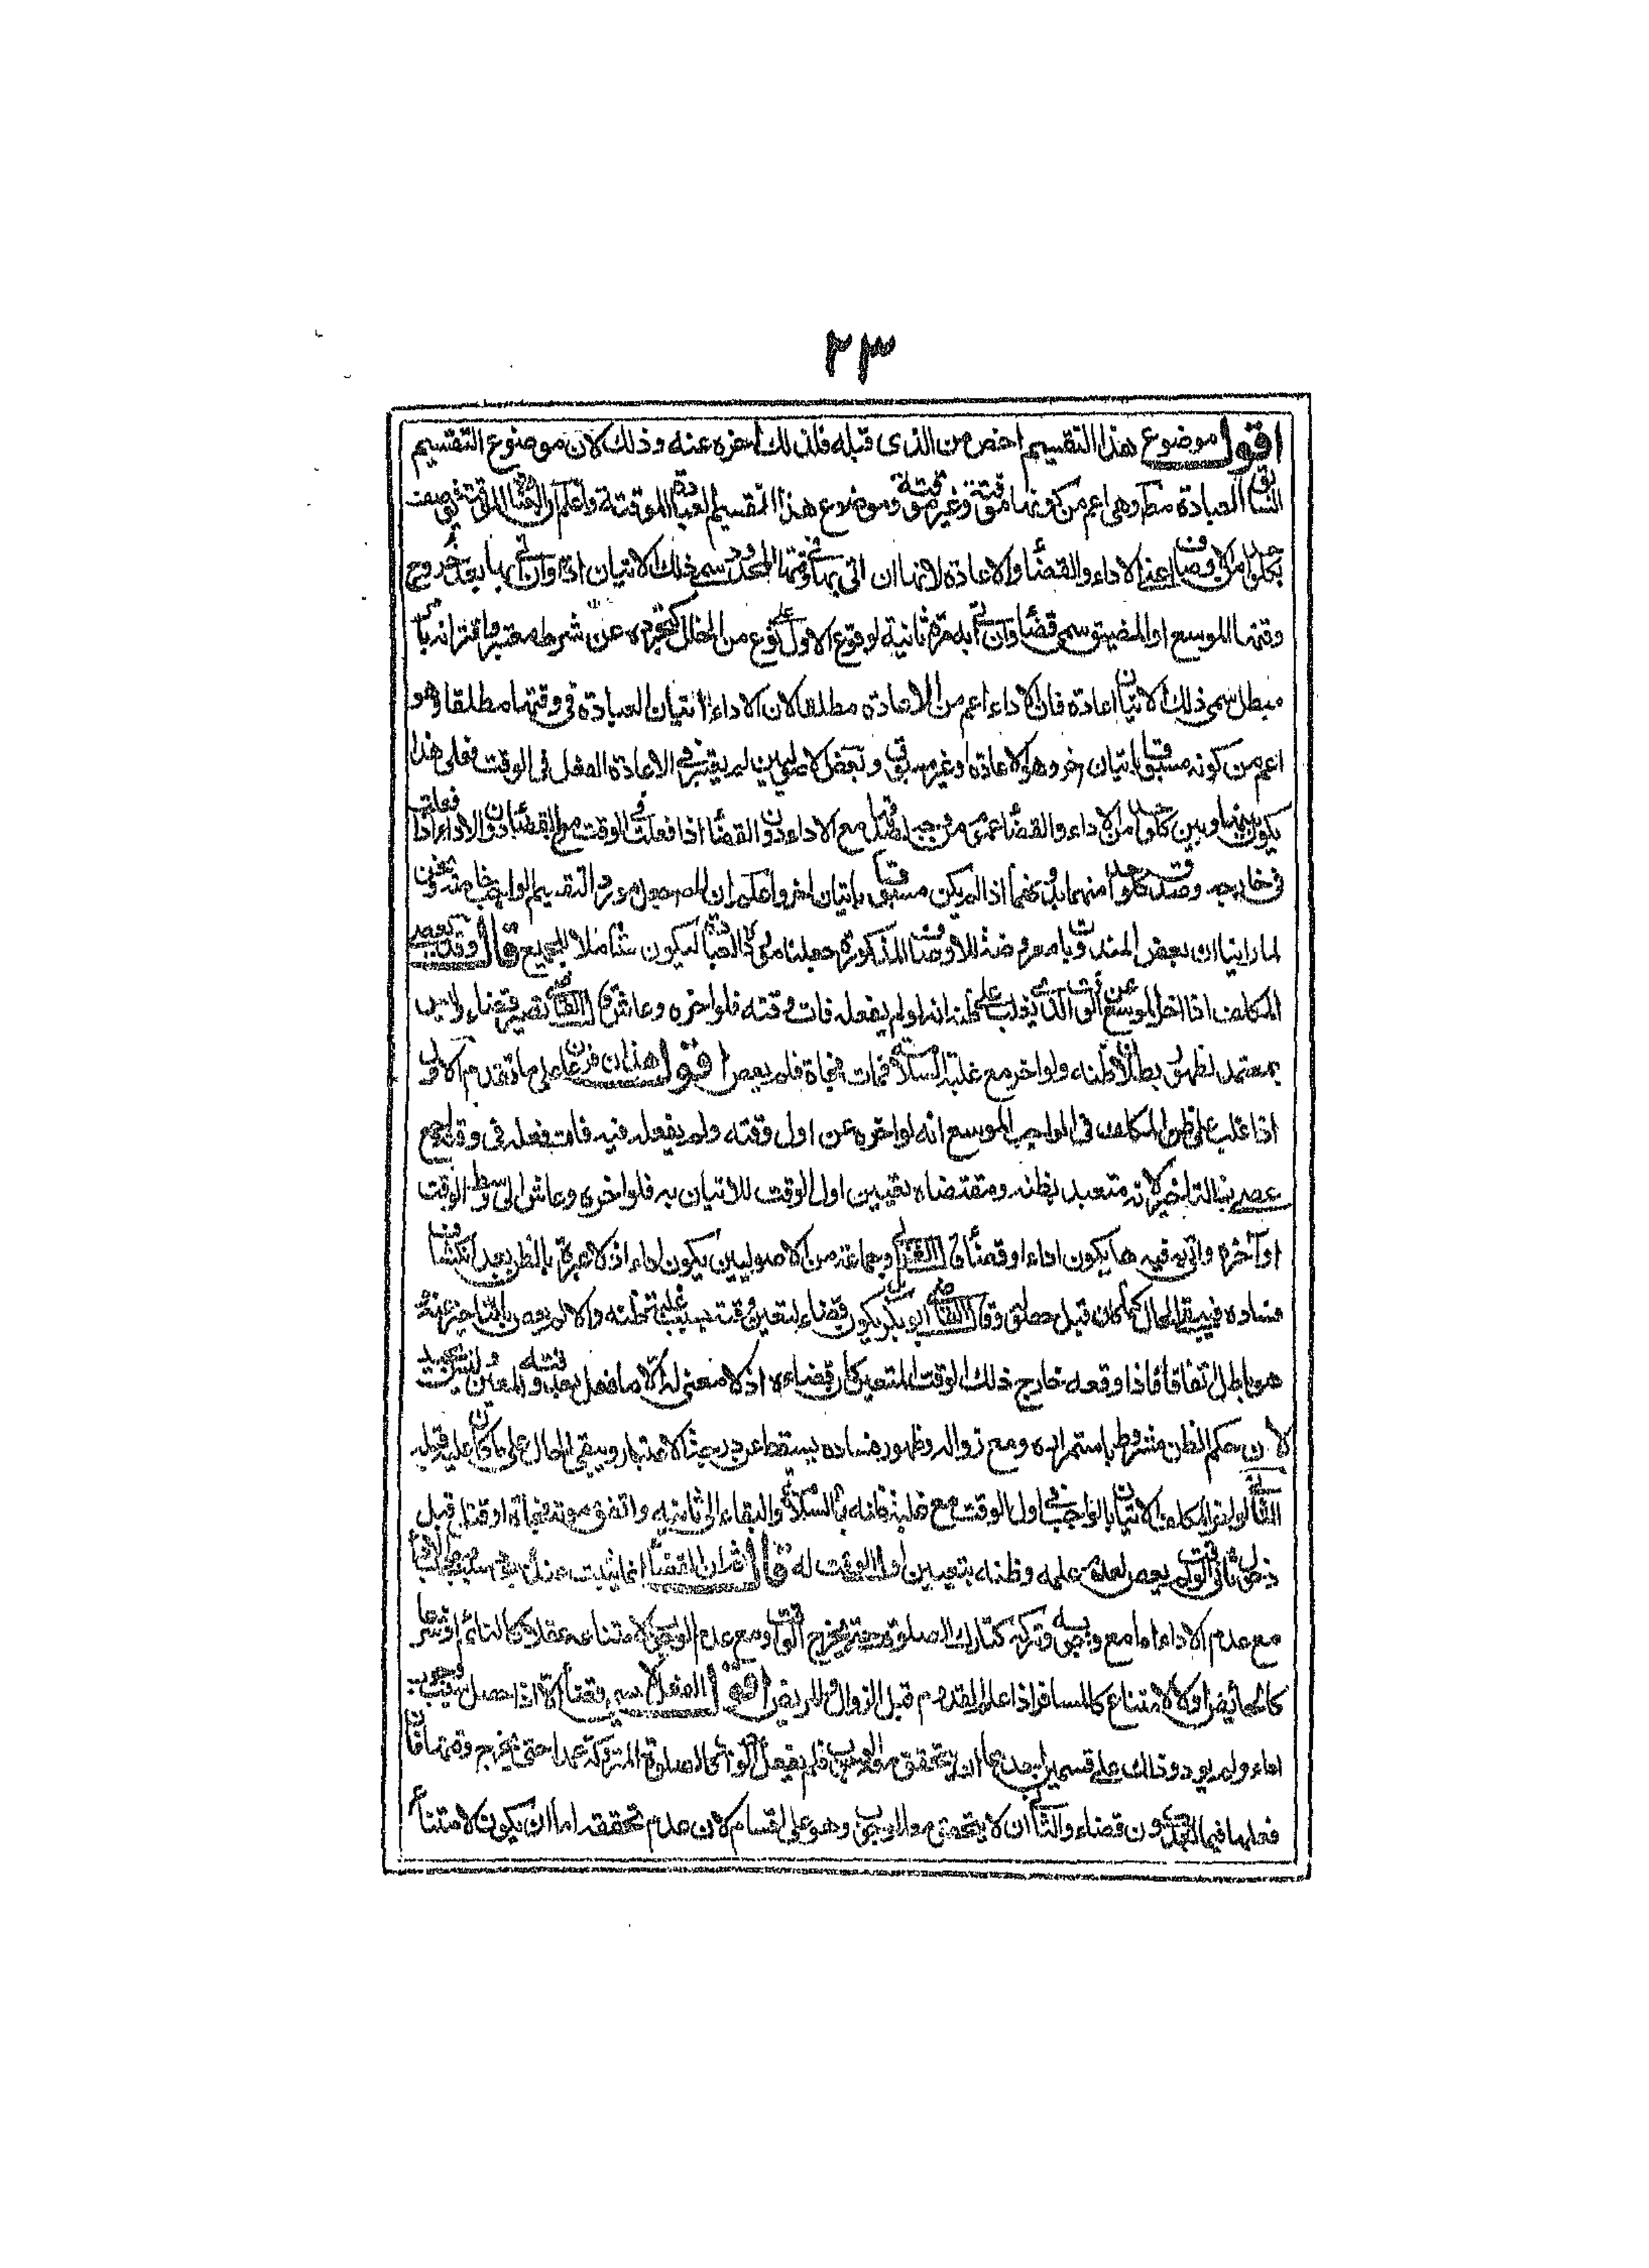 ٢٣
اقول موضوع هذا التقسيم اخص من الذى قبله فلذلك اخره عنه وذلك لان موضوع التقسيم
السابق العبادة مطلقا وهى اعم من كونها موقتة وغير موقتة وموضوع هذا التقسيم العبادة الموقتة واعلم ان العبادة الموقتة
من اوصاف اعنى الاداء والقضاء والاعادة لانها ان اتى بها فى وقتها المحدود سمى ذلك الاتيان اداء وان اتى بها بعد خروج
وقتها الموسع او المضيق سمى قضاء وان اتى به مرة ثانية لوقوع الاول على نوع من الخلل كتجرده عن شرط معتبر او اقترانه
مبطل سمى ذلك الاتيان اعادة فان الاداء اعم من الاعادة مطلقا لان الاداء اتيان العبادة فى وقتها مطلقا وهو
اعم من كونه مسبوقا باتيان اخر وهو الاعادة او غير مسبوق وبعض الاصوليين لم يعتبر فى الاعادة الفعل فى الوقت فعلى هذا
يكون بينها وبين كل واحد من الاداء والقضاء عموم من وجه مع الاداء دون القضاء اذا فعلت فى الوقت ومع القضاء دون الاداء اذا فعلت
فى خارجه وقد كل واحد منهما بدونها اذا لم يكن مسبوقا باتيان اخر واعلم ان المص جعل مورد التقسيم الواجب خاصة ونحن
لما راينا ان بعض المندوبات معروضة للاوصاف المذكورة جعلنا العبادة ليكون شاملا للجميع قال وقد يعصى
المكلف اذا اخر الموسع عن الوقت الذى يغلب على ظنه انه لو لم يفعله فات وقته فلو اخره وعاش قال القاضى يصير قضاء وليس
بمعتمد لظهور بطلان ظنه ولو اخر مع غلبة السلامة فمات فجأة فلم يعص اقول هذان فرعان على ما تقدم الاول
اذا غلب على ظن المكلف فى الواجب الموسع انه لو اخره عن اول وقته ولم يفعله فيه فات فعله فى وقته
عصى بالتاخير لانه متعبد بظنه ومقتضاه تعيين اول الوقت للاتيان به فلو اخره وعاش الى وسط الوقت
او آخره واتى به فيه هل يكون اداء او قضاء قال الغزالى وجماعة من الاصوليين يكون اداء اذ لا عبرة بالظن بعد انكشاف
فساده فيبقى الحال كما كان قبل حصوله وقال القاضى ابو بكر يكون قضاء لتعين وقته بسبب غلبة ظنه والا لم يعص بالتاخير عنه
هو باطل اتفاقا فاذا اوقعه خارج ذلك الوقت المتعين كان قضاء اذ لا معنى له الا ما فعل بعد وقته المعين
لان حكم الظن مشروط باستمراره ومع زواله وظهور فساده يسقط عن درجة الاعتبار ويبقى الحال على ما كان عليه قبله
الثانى لو اخر المكلف الاتيان بالواجب فى اول الوقت مع غلبة ظنه بالسلامة والبقاء الى ثانيه واتفق موته فجأة او قتل قبل
ثانى الوقت لم يعص لعدم علمه وظنه بتعيين اول الوقت له قال ثم ان القضاء انما يثبت عند
مع عدم الاداء اما مع وجوبه وتركه كتارك الصلوة حتى يخرج الوقت او مع عدم الوجوب لامتناعه عقلا كالنائم او شرعا
كالحائض او لا لامتناع كالمسافر اذا علم القدوم قبل الزوال والمريض اقول الفعل لا يسمى قضاء الا اذا حصل سبب وجوب
اداء ولم يؤد وذلك على قسمين احدهما ان يتحقق الوجوب فلم يفعل الصلوة المتروكة عمدا حتى يخرج وقتها
فعلها فيما بعد يكون قضاء والثانى ان لا يتحقق الوجوب وهو على اقسام لان عدم تحققه اما ان يكون لامتناع